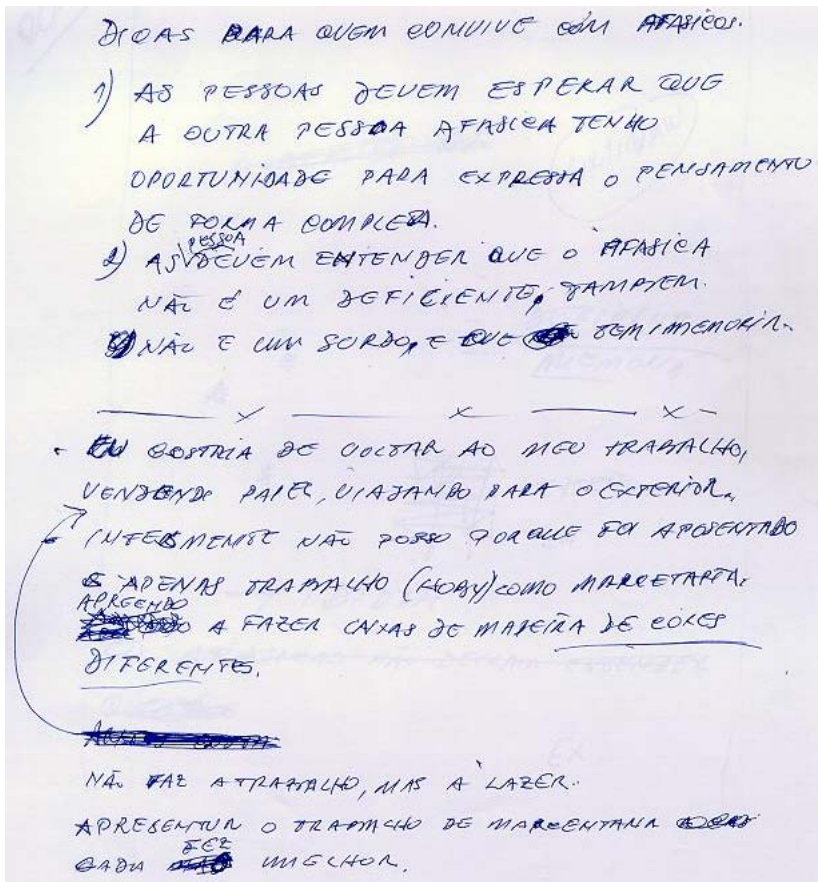 DICAS PARA QUEM CONVIVE COM AFASICOS.
1) AS PESSOAS DEVEM ESPERAR QUE
A OUTRA PESSOA AFASICA TENHO
OPORTUNIDADE PARA EXPRESSA O PENSAMENTO
DE FORMA COMPLETA.
2) AS PESSOA DEVEM ENTENDER QUE O AFASICA
NÃO É UM DEFICIENTE, TAMBEM.
NÃO E UM SURDO, E QUE TEM MEMORIA.
EU GOSTRIA DE VOLTAR AO MEU TRABALHO,
VENDENDO PAPEL, VIAJANDO PARA O EXTERIOR.
INFELSMENTE NÃO POSSO PORQUE FOI APOSENTADO
E APENAS TRABALHO (HOBY) COMO MARCETARIA.
APREENDO
A FAZER CAIXAS DE MADEIRA DE CORES
DIFERENTES.
NÃO FAZ A TRABALHO, MAS A LAZER.
APRESENTUR O TRABALHO DE MARCENTANA
CADA FEZ MIGCHOR.